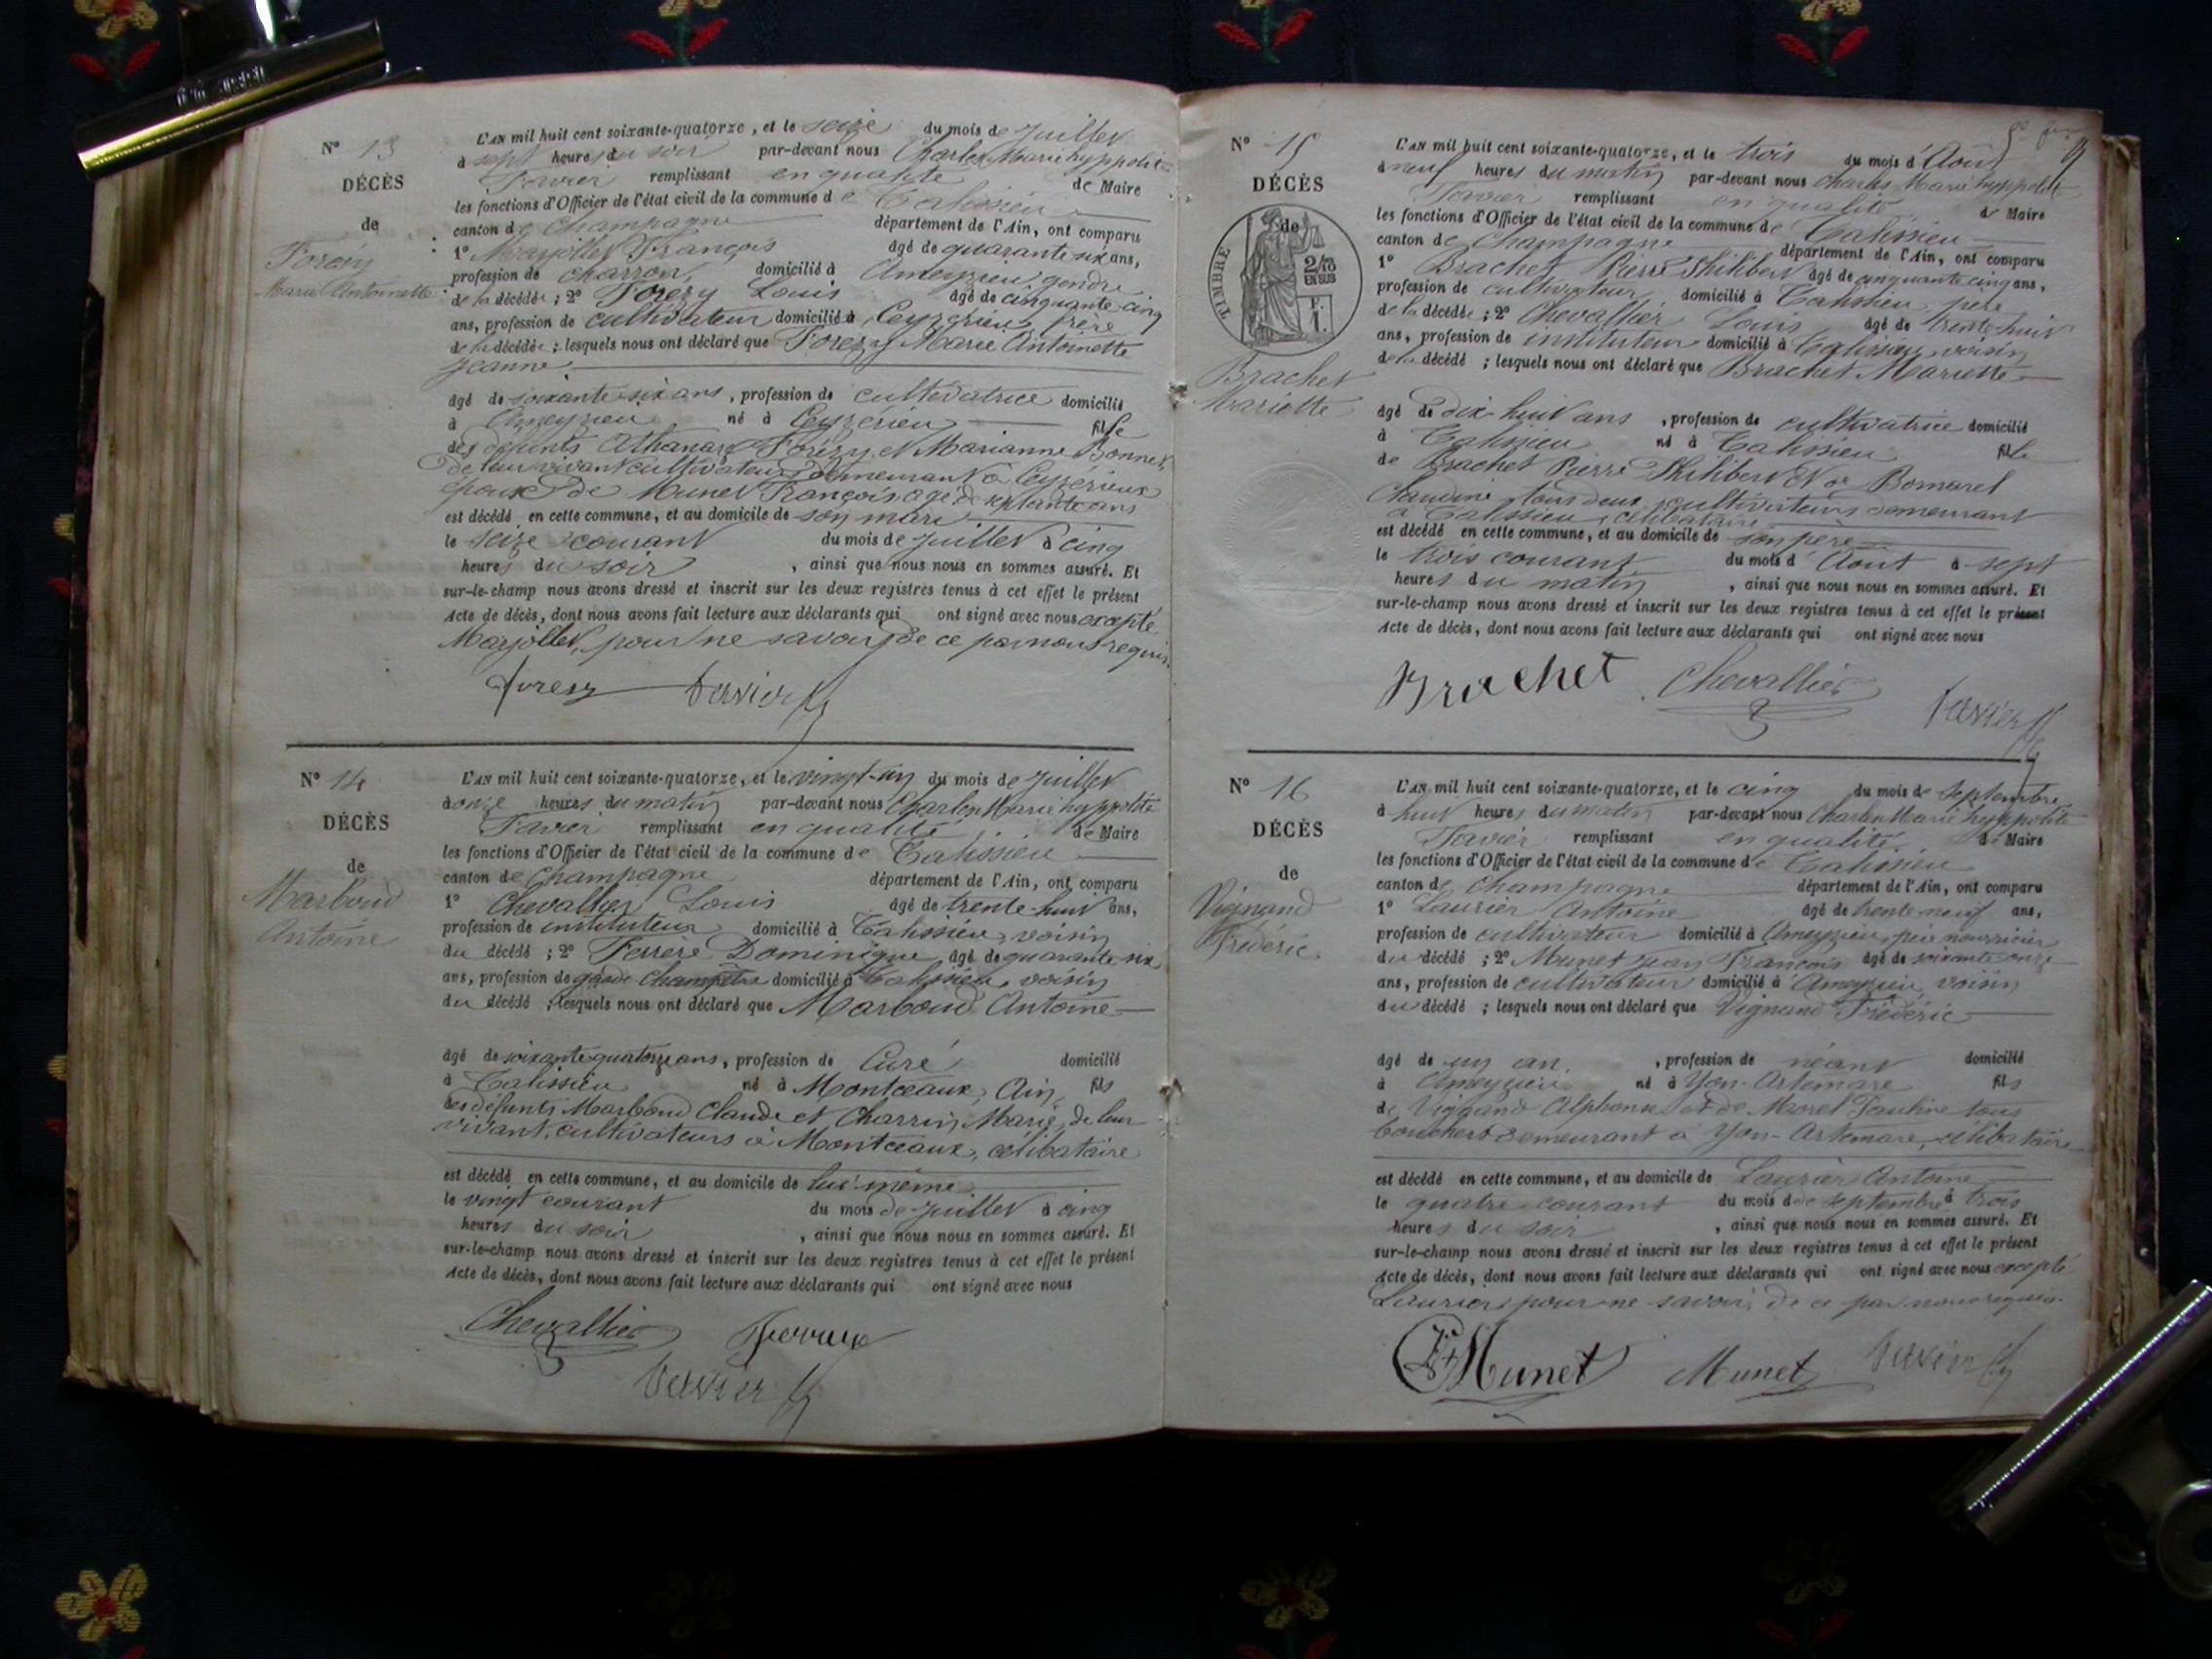 N° 13
DÉCÈS
de
Forézy
Marie Antoinette
L'AN mil huit cent soixante-quatorze, et le seize du mois de Juillet
à sept heures du soir par-devant nous Charles Marie hyppolite
Tavier remplissant en qualité de Maire
les fonctions d'Officier de l'état civil de la commune de Talissieu
canton de Champagne département de l'Ain, ont comparu
1° Marjollet François âgé de quarante six ans,
profession de charron, domicilié à Ameyzieu, gendre
de la décédée ; 2° Forézy Louis âgé de cinquante-cinq
ans, profession de cultivateur domicilié à Ceyzérieu, frère
de la décédée ; lesquels nous ont déclaré que Forézy Marie Antoinette
Jeanne
âgé de soixante-six ans, profession de cultivatrice domicilié
à Ameyzieu né à Ceyzérieu fille
des défunts Athanase Forézy et Marianne Bonnet,
de leur vivant cultivateurs demeurant à Ceyzérieu
épouse de Munet François âgé de septante ans
est décédé en cette commune, et au domicile de son mari
le seize courant du mois de Juillet à cinq
heures du soir, ainsi que nous nous en sommes assuré. Et
sur-le-champ nous avons dressé et inscrit sur les deux registres tenus à cet effet le présent
Acte de décès, dont nous avons fait lecture aux déclarants qui ont signé avec nous excepté
Marjollet, pour ne savoir, de ce par nous requis.
Forezy Tavier
N° 14
DÉCÈS
de
Marboud
Antoine
L'AN mil huit cent soixante-quatorze, et le vingt-un du mois de Juillet
à onze heures du matin par-devant nous Charles Marie hyppolite
Tavier remplissant en qualité de Maire
les fonctions d'Officier de l'état civil de la commune de Talissieu
canton de Champagne département de l'Ain, ont comparu
1° Chevallier Louis âgé de trente-huit ans,
profession de instituteur domicilié à Talissieu, voisin
du décédé ; 2° Ferrere Dominique âgé de quarante six
ans, profession de garde champêtre domicilié à Talissieu, voisin
du décédé ; lesquels nous ont déclaré que Marboud Antoine
âgé de soixante quatorze ans, profession de Curé domicilié
à Talissieu né à Montceaux, Ain, fils
des défunts Marboud Claude et Charrin Marie, de leur
vivant, cultivateurs à Montceaux, célibataire
est décédé en cette commune, et au domicile de lui même
le vingt courant du mois de Juillet à cinq
heures du soir, ainsi que nous nous en sommes assuré. Et
sur-le-champ nous avons dressé et inscrit sur les deux registres tenus à cet effet le présent
Acte de décès, dont nous avons fait lecture aux déclarants qui ont signé avec nous
Chevallier
Tavier
N° 15
DÉCÈS
de
TIMBRE
2/10
EN SUS
Brachet
Mariette
L'AN mil huit cent soixante-quatorze, et le trois du mois d'Août
à neuf heures du matin par-devant nous Charles Marie hyppolite
Tavier remplissant en qualité de Maire
les fonctions d'Officier de l'état civil de la commune de Talissieu
canton de Champagne département de l'Ain, ont comparu
1° Brachet Pierre Philibert âgé de cinquante cinq ans,
profession de cultivateur domicilié à Talissieu, père
de la décédée ; 2° Chevallier Louis âgé de trente-huit
ans, profession de instituteur domicilié à Talissieu, voisin
de la décédé ; lesquels nous ont déclaré que Brachet Mariette
âgé de dix-huit ans, profession de cultivatrice domicilié
à Talissieu né à Talissieu fille
de Brachet Pierre Philibert et de Bomarel
Claudine, tous deux cultivateurs demeurant
à Talissieu, célibataire
est décédé en cette commune, et au domicile de son père
le trois courant du mois d'Aout à sept
heures du matin, ainsi que nous nous en sommes assuré. Et
sur-le-champ nous avons dressé et inscrit sur les deux registres tenus à cet effet le présent
Acte de décès, dont nous avons fait lecture aux déclarants qui ont signé avec nous
Brachet Chevallier Tavier
N° 16
DÉCÈS
de
Vignand
Frédéric
L'AN mil huit cent soixante-quatorze, et le cinq du mois de Septembre
à huit heures du matin par-devant nous Charles Marie hyppolite
Tavier remplissant en qualité de Maire
les fonctions d'Officier de l'état civil de la commune de Talissieu
canton de Champagne département de l'Ain, ont comparu
1° Laurier Antoine âgé de trente-neuf ans,
profession de cultivateur domicilié à Ameyzieu, père nourricier
du décédé ; 2° Munet Jean François âgé de soixante-onze
ans, profession de cultivateur domicilié à Ameyzieu, voisin
du décédé ; lesquels nous ont déclaré que Vignand Frédéric
âgé de un an, profession de néant domicilié
à Ameyzieu né à Yon-Artemare fils
de Vignand Alphonse et de Morel Pauline tous
bouchers demeurant à Yon-Artemare, célibataire
est décédé en cette commune, et au domicile de Laurier Antoine
le quatre courant du mois de septembre à trois
heures du soir, ainsi que nous nous en sommes assuré. Et
sur-le-champ nous avons dressé et inscrit sur les deux registres tenus à cet effet le présent
Acte de décès, dont nous avons fait lecture aux déclarants qui ont signé avec nous excepté
Laurier, pour ne savoir, de ce par nous requis.
Munet Munet Tavier